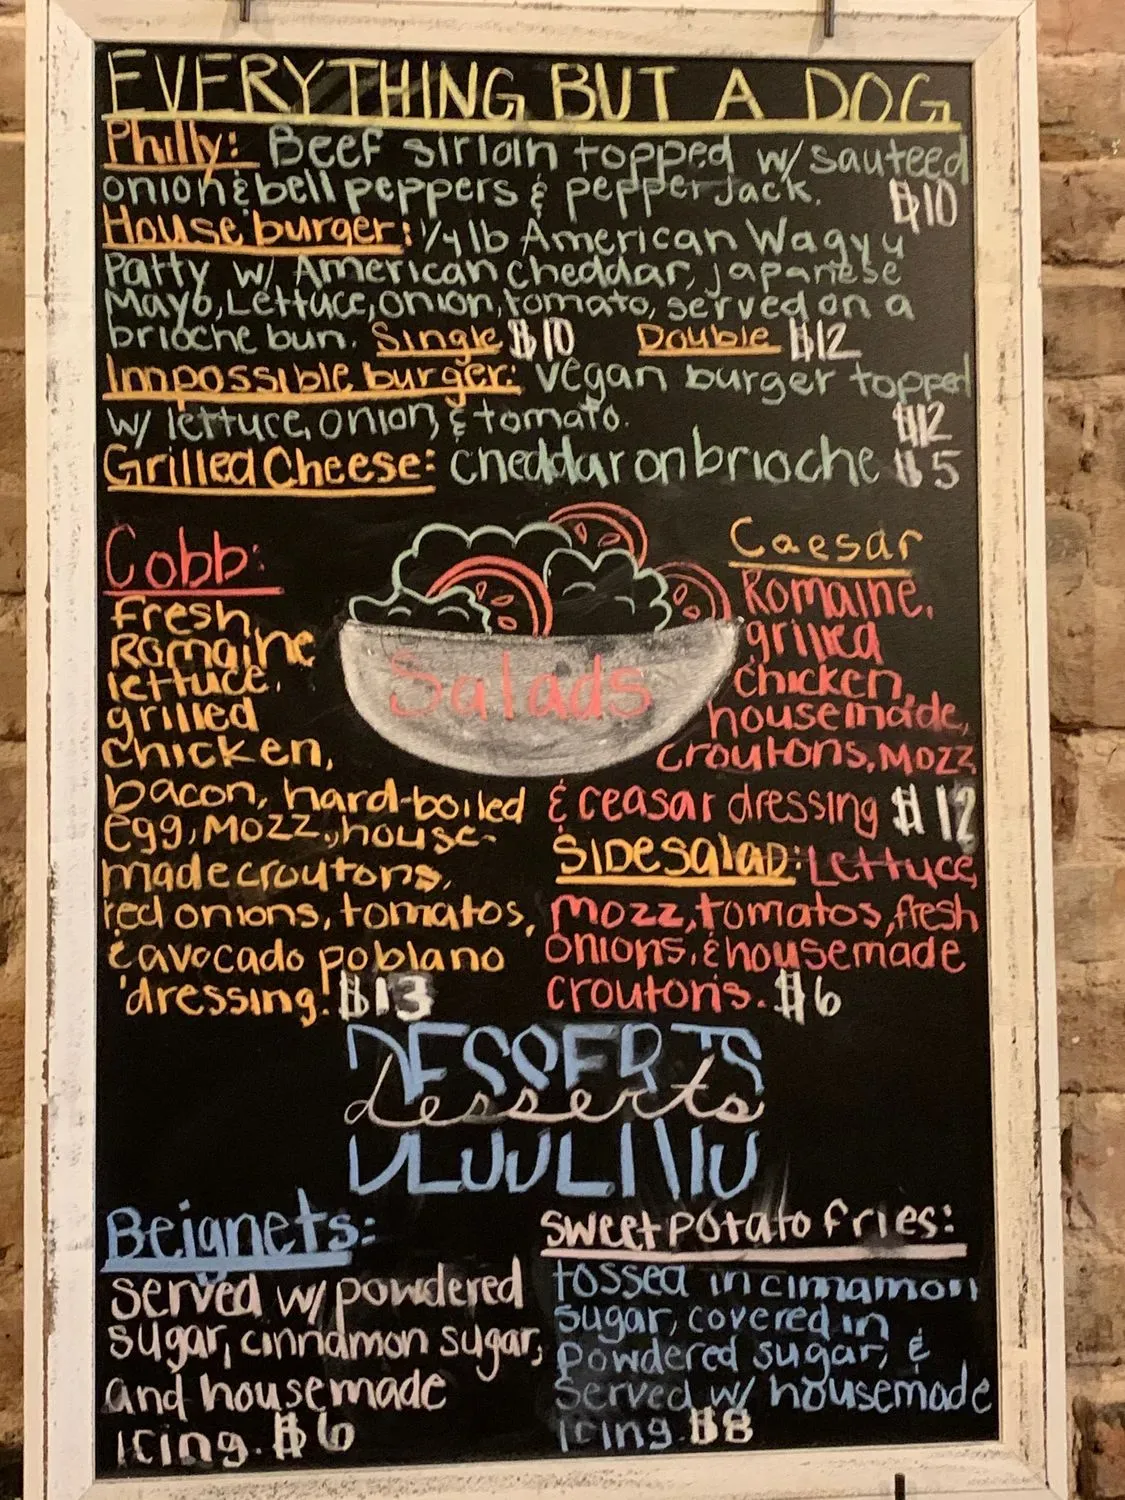 EVERYTHING BUT A DOG
Philly: Beef sirloin topped w/ sauteed
onion & bell peppers & pepper jack. $10
House burger: 1/4 lb American Wagyu
Patty w/ American cheddar, japanese
Mayo, Lettuce, onion, tomato, served on a
brioche bun. Single $10 Double $12
Impossible burger: vegan burger topped
w/ lettuce, onion, & tomato. $12
Grilled Cheese: cheddar on brioche $5
Cobb:
fresh
Romaine
lettuce,
grilled
chicken,
bacon, hard-boiled
egg, Mozz., house-
made croutons,
red onions, tomatos,
& avocado poblano
dressing! $13
Salads
Caesar
Romaine,
grilled
chicken,
housemade,
croutons, Mozz
& ceasar dressing $12
Side salad: Lettuce,
Mozz, tomatos, fresh
onions, & housemade
croutons. $6
DESSERTS
desserts
Beignets:
served w/ powdered
sugar, cinnamon sugar,
and housemade
icing. $6
sweet potato fries:
tossed in cinnamon
sugar, covered in
powdered sugar, &
served w/ housemade
icing. $8